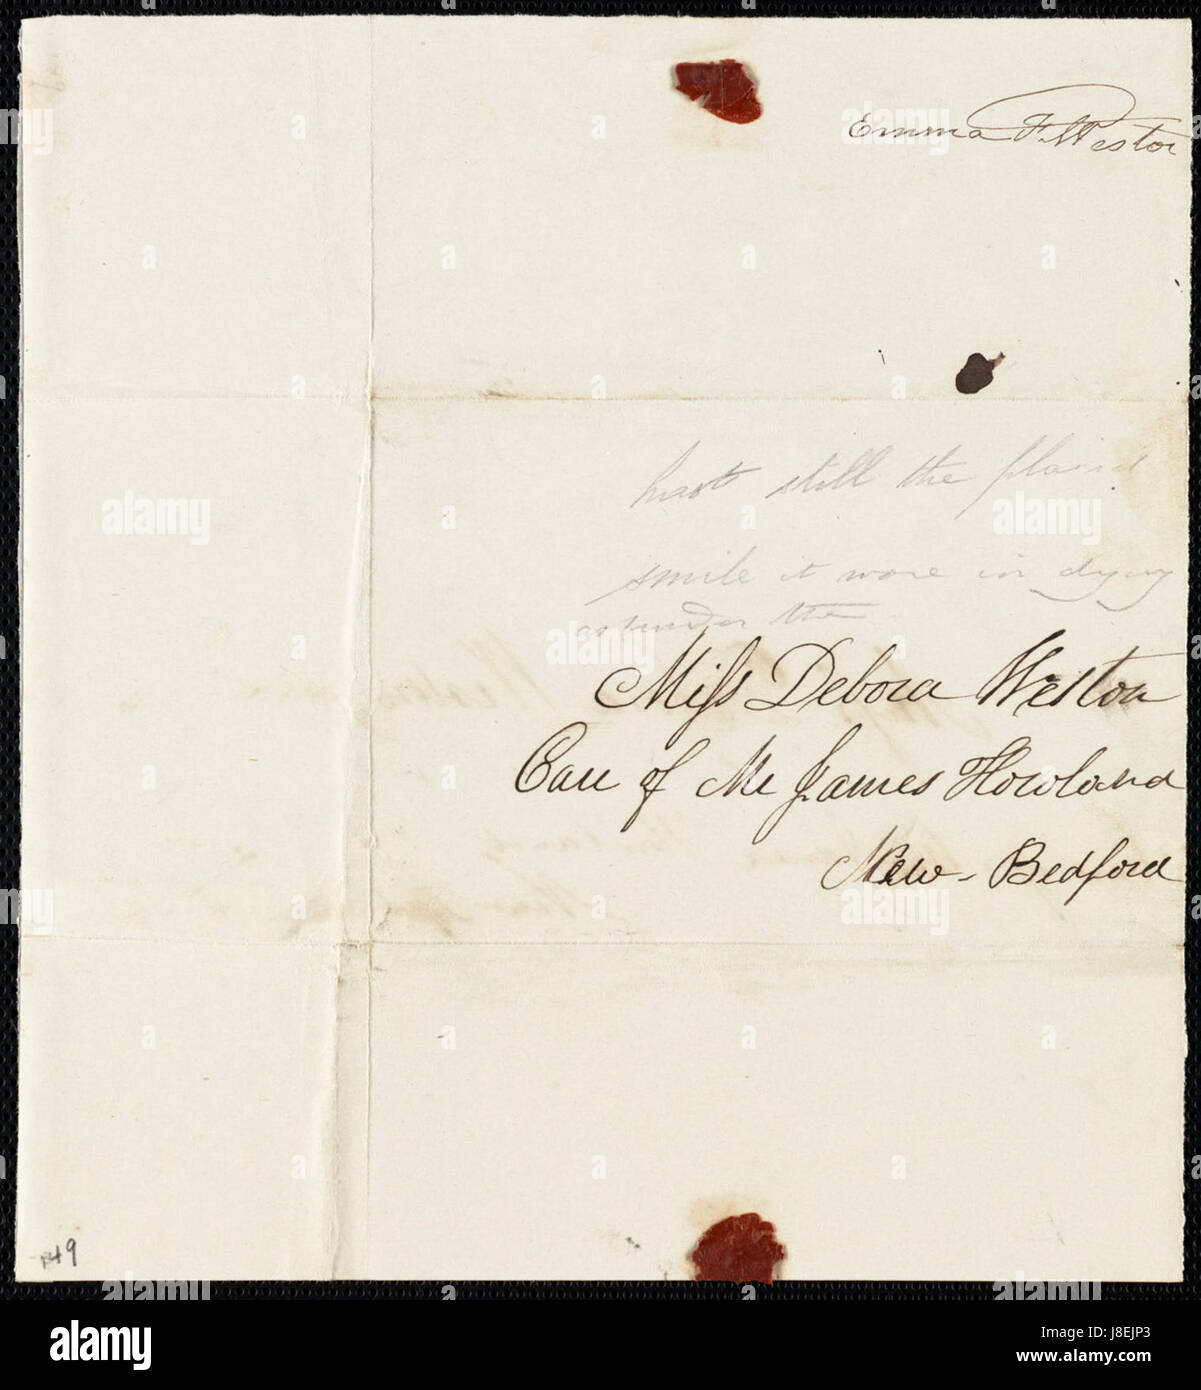 Emma F. Weston
hast still the placid
smile it wore in dying
asunder the
Miss Debora Weston
Care of Mr James Howland
New-Bedford
49
alamy
Image ID: J8EJP3
www.alamy.com